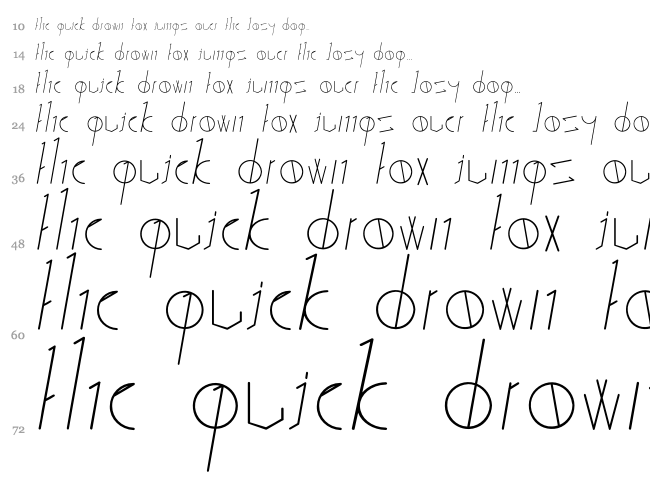 10 the quick brown fox jumps over the lazy dog.
14 the quick brown fox jumps over the lazy dog...
18 the quick brown fox jumps over the lazy dog...
24 the quick brown fox jumps over the lazy do
36 the quick brown fox jumps ov
48 the quick brown fox ju
60 the quick brown fo
72 the quick brown